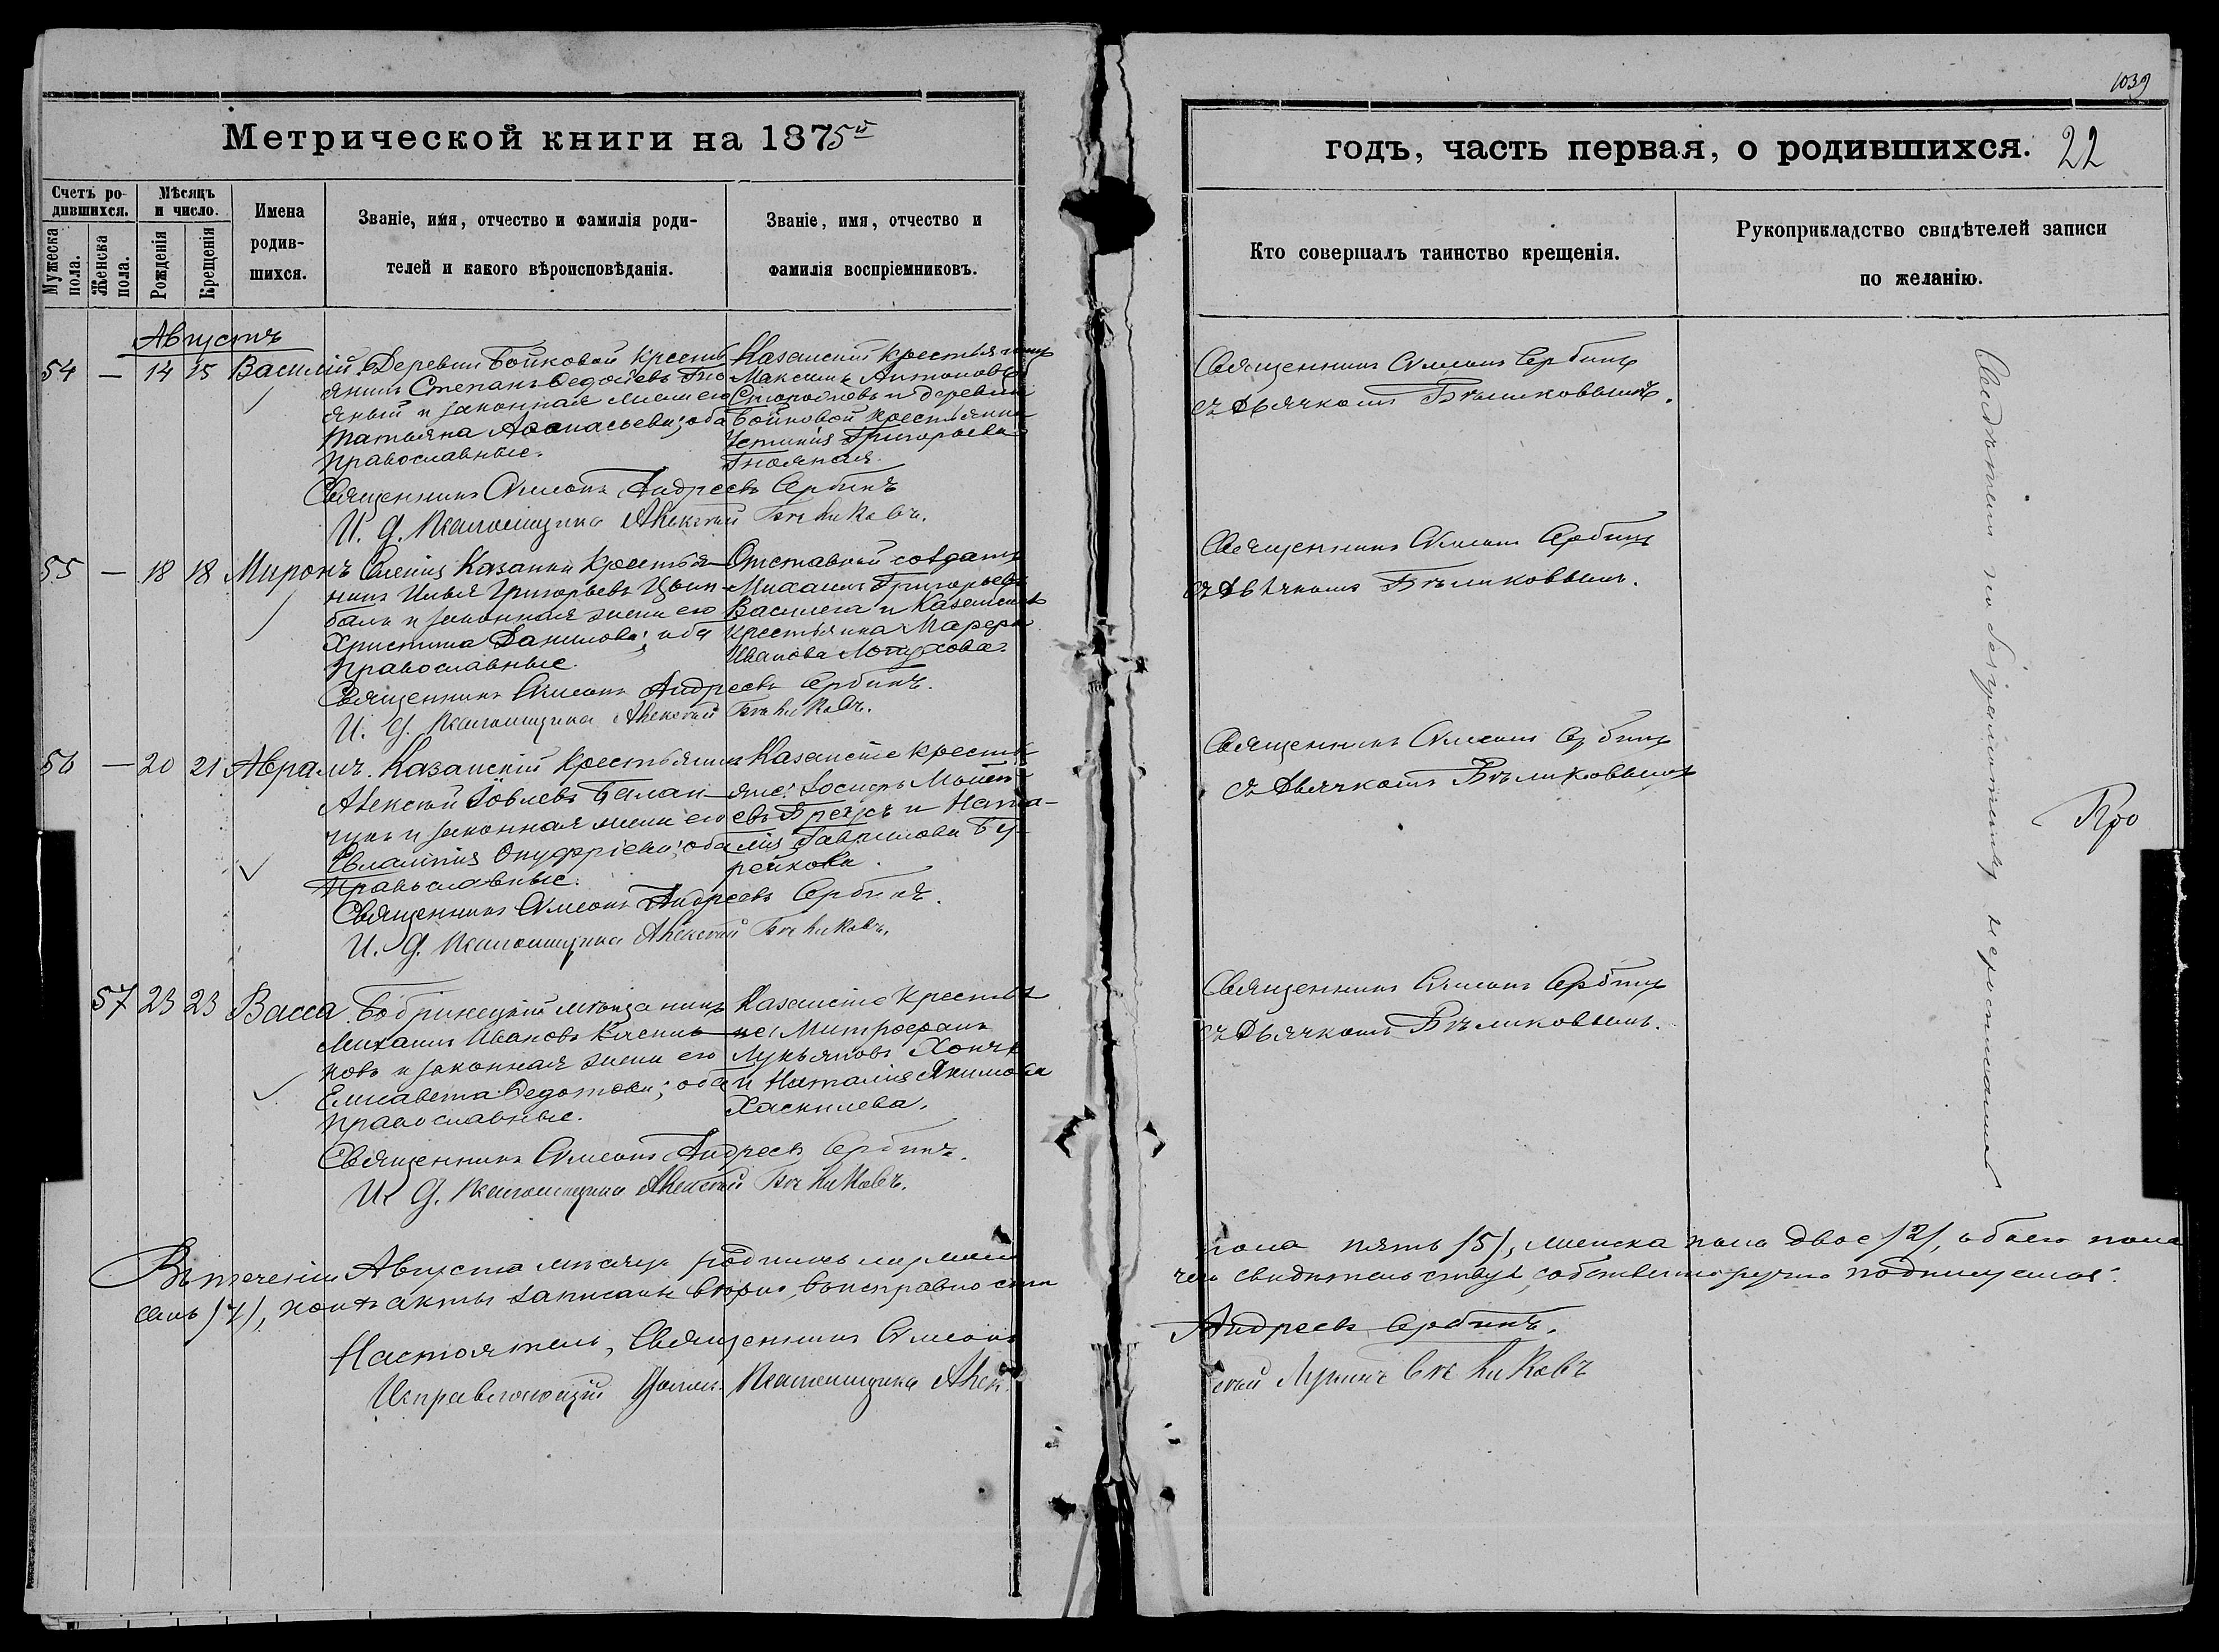 1039
Метрической книги на 1875й
годъ, часть первая, о родившихся. 22
Счетъ ро-
дившихся.
Мужеска
пола.
Женска
пола.
Мѣсяцъ
и число.
Рожденія
Крещенія
Имена
родив-
шихся.
Званіе, имя, отчество и фамилія роди-
телей и какого вѣроисповѣданія.
Званіе, имя, отчество и
фамилія воспріемниковъ.
Кто совершалъ таинство крещенія.
Рукоприкладство свидѣтелей записи
по желанію.
Августъ
54 — 14 15 Василій.
Деревни Бойковой кресть
янинъ Степанъ Ѳедосіевъ Гно
яный и законная жена его
Татьяна Аѳанасьева; оба
православные.
Казанскій крестьянинъ
Максимъ Антоновъ
и деревни
Бойковой крестьянка
Устинія Григорьева
Гнояная.
Священникъ Симеонъ Сербинъ
съ Дьячкомъ Бѣликовымъ.
Священникъ Симеонъ Андреевъ Сербинъ
И. д. Псаломщика Алексѣй Бѣликовъ.
55 — 18 18 Миронъ
Селенія Казанки крестья-
нинъ Илья Григорьевъ Цым-
балъ и законная жена его
Христина Данилова; оба
православные.
Отставной солдатъ
Михаилъ Григорьевъ
и Казанская
крестьянка Марфа
Иванова Лопухова.
Священникъ Симеонъ Сербинъ
съ Дьячкомъ Бѣликовымъ.
Священникъ Симеонъ Андреевъ Сербинъ.
И. д. Псаломщика Алексѣй Бѣликовъ.
56 — 20 21 Аврамъ.
Казанскій крестьянинъ
Алексѣй Іовлевъ Балан-
и законная жена его
Евлампія Онуфріева; оба
православные.
Казанскіе кресть
яне: Іосифъ Моисе-
евъ и Ната-
лія Гаврилова Бу-
рейкова.
Священникъ Симеонъ Сербинъ
съ Дьячкомъ Бѣликовымъ
Священникъ Симеонъ Андреевъ Сербинъ.
И. д. Псаломщика Алексѣй Бѣликовъ.
57 23 23 Васса.
Бобринецкій мѣщанинъ
Михаилъ Ивановъ
и законная жена его
Елисавета Ѳедотова; оба
православные.
Казанскіе крестья
не: Митрофанъ
Лукьяновъ
и Наталія Якимова
Хаскилева.
Священникъ Симеонъ Сербинъ
съ Дьячкомъ Бѣликовымъ.
Священникъ Симеонъ Андреевъ Сербинъ.
И. д. Псаломщика Алексѣй Бѣликовъ.
Свидѣтели по безграмотству нерасписались
Въ теченіи Августа мѣсяца родилось мужеска пола пять /5/, женска пола двое /2/, обоего пола
семь /7/, акты записаны вѣрно, въ исправности чего свидѣтельствуя, собственноручно подписуемся:
Настоятель, Священникъ Симеонъ Андреевъ Сербинъ.
Исправляющій Должн. Псаломщика Алексѣй Бѣликовъ